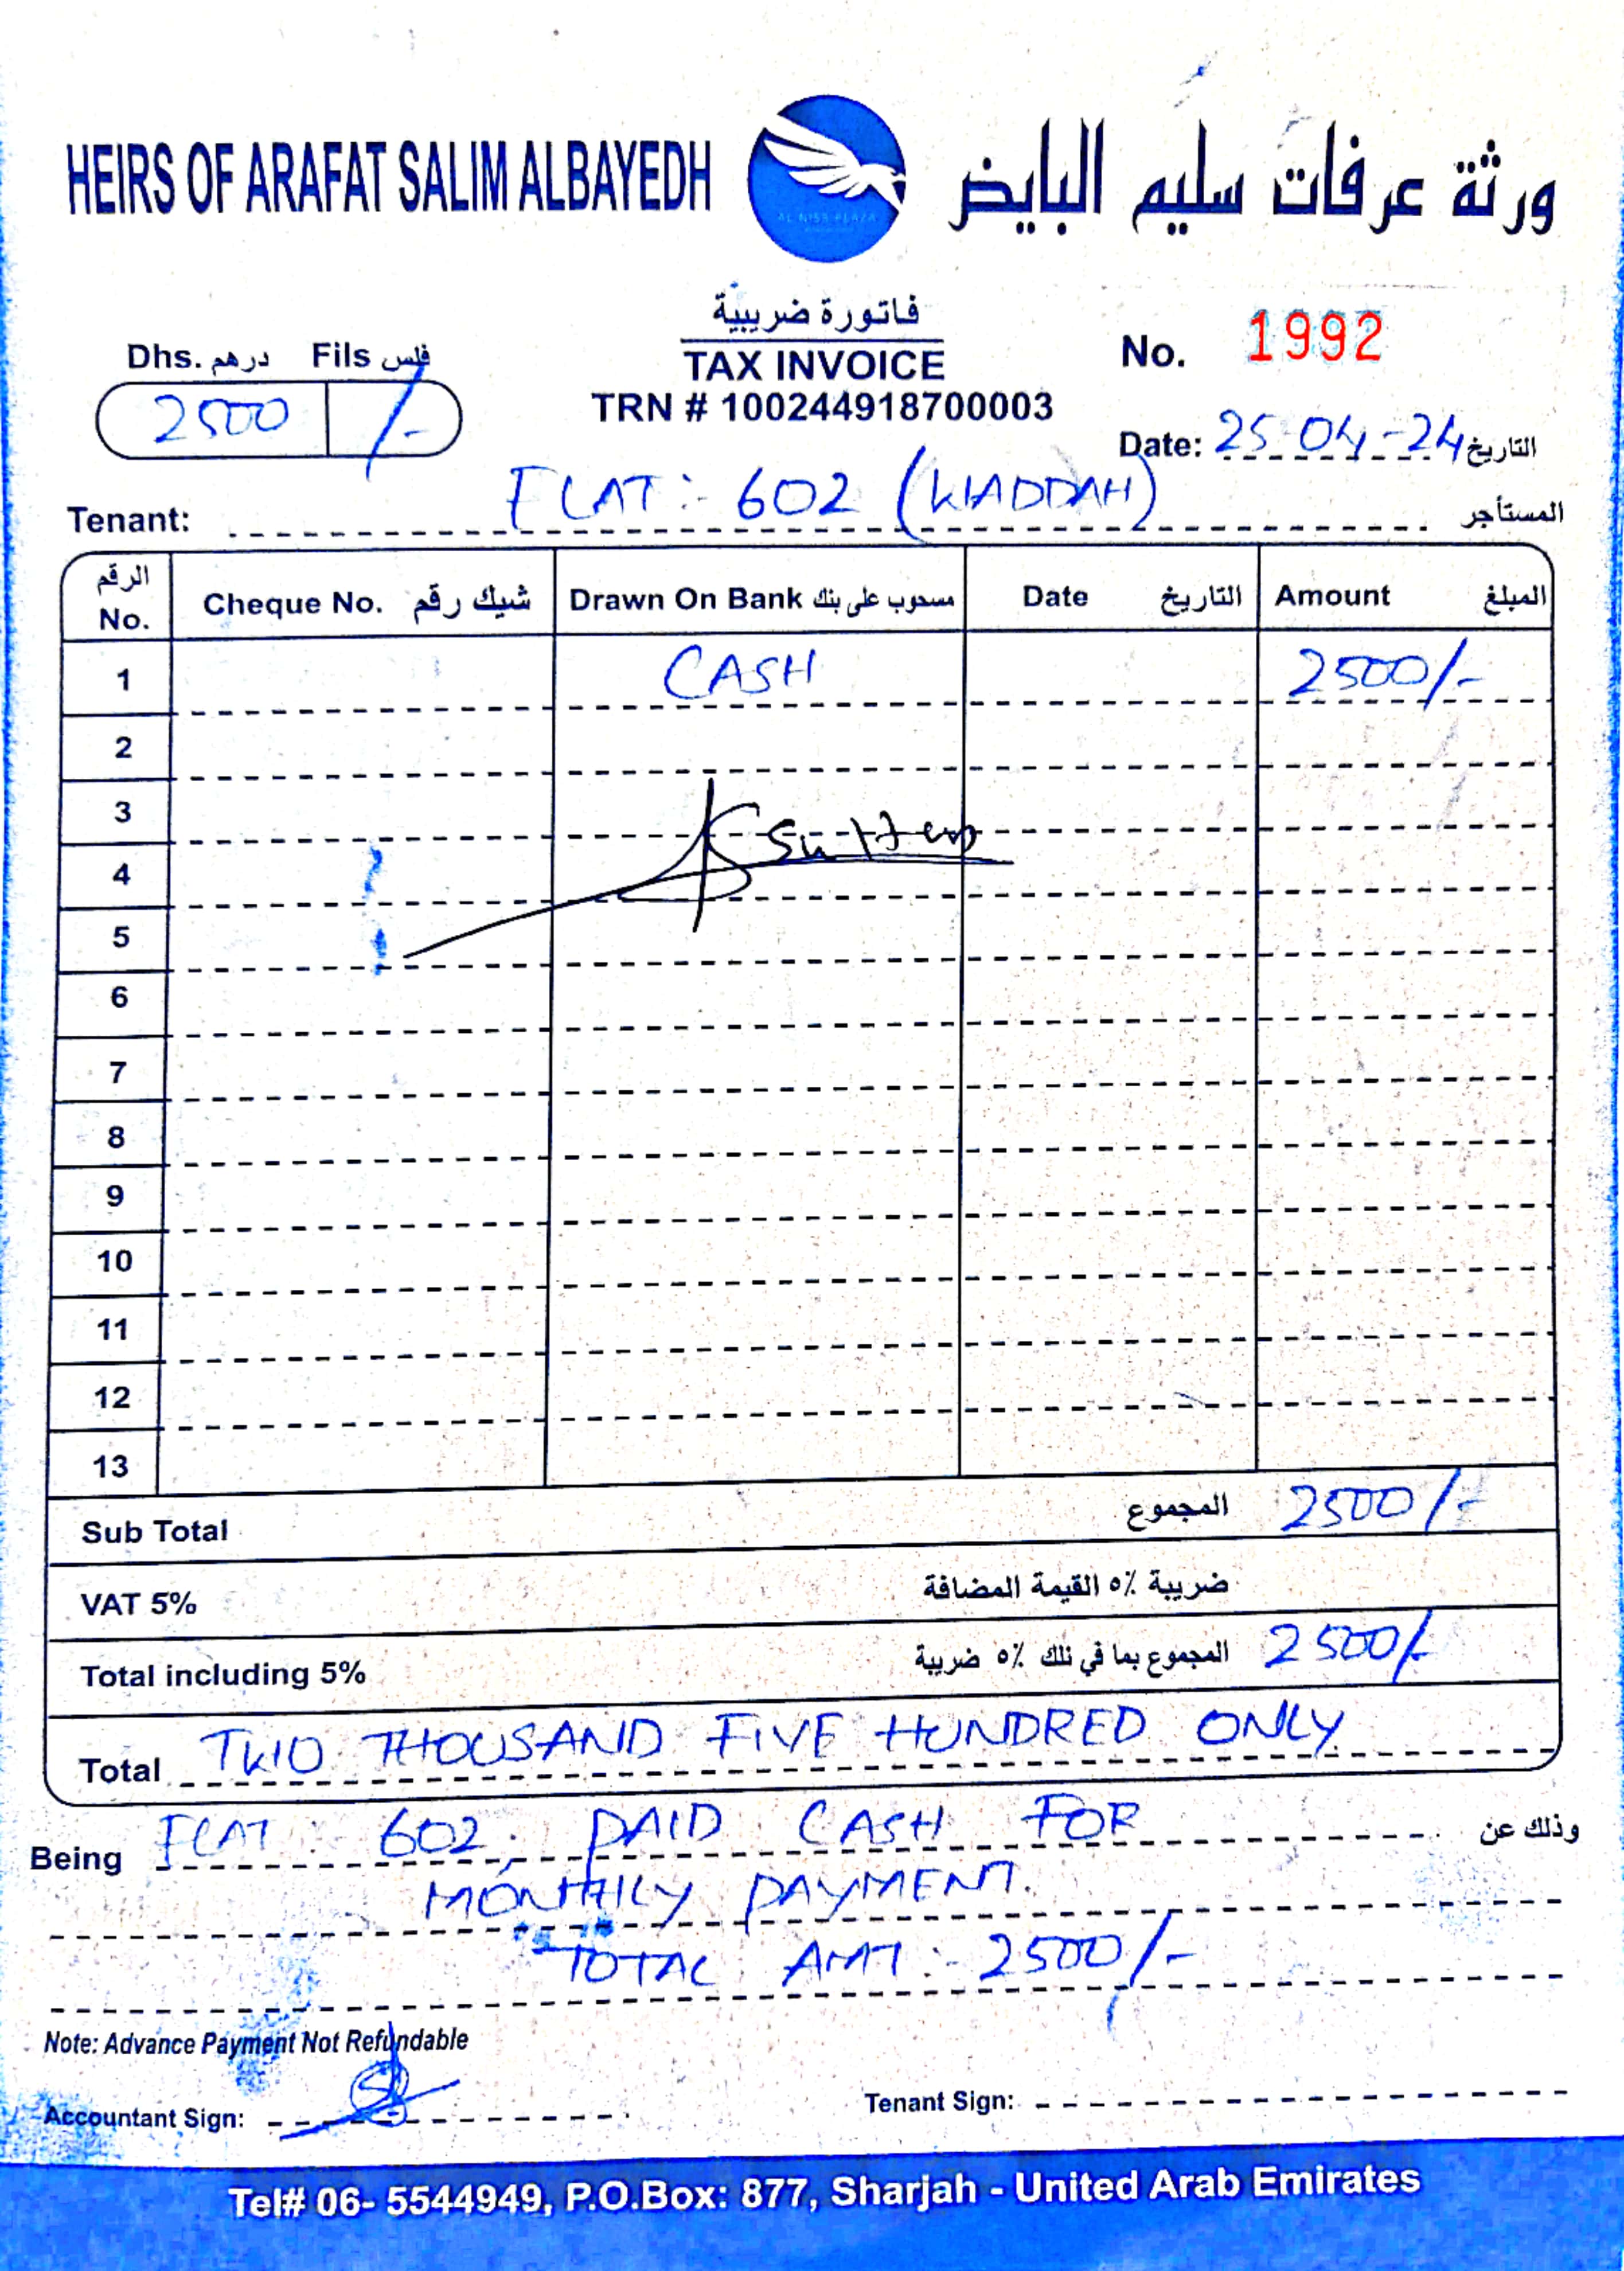 HEIRS OF ARAFAT SALIM ALBAYEDH
ورثة عرفات سليم البايض
AL NISS PLAZA
فاتورة ضريبية
TAX INVOICE
TRN # 100244918700003
Dhs. درهم Fils فلس
2500 /-
No. 1992
Date: 25-04-24 التاريخ
Tenant: FLAT:- 602 (WADDAH) المستأجر
الرقم No. Cheque No. شيك رقم Drawn On Bank مسحوب على بنك Date التاريخ Amount المبلغ
1 CASH 2500/-
2
3
Sultan
4
5
6
7
8
9
10
11
12
13
Sub Total المجموع 2500/-
VAT 5% ضريبة ٥٪ القيمة المضافة
Total including 5% المجموع بما في ذلك ٥٪ ضريبة 2500/-
Total TWO THOUSAND FIVE HUNDRED ONLY
Being FLAT:- 602. PAID CASH FOR وذلك عن
MONTHLY PAYMENT.
TOTAL AMT:- 2500/-
Note: Advance Payment Not Refundable
Accountant Sign:
Tenant Sign:
Tel# 06- 5544949, P.O.Box: 877, Sharjah - United Arab Emirates